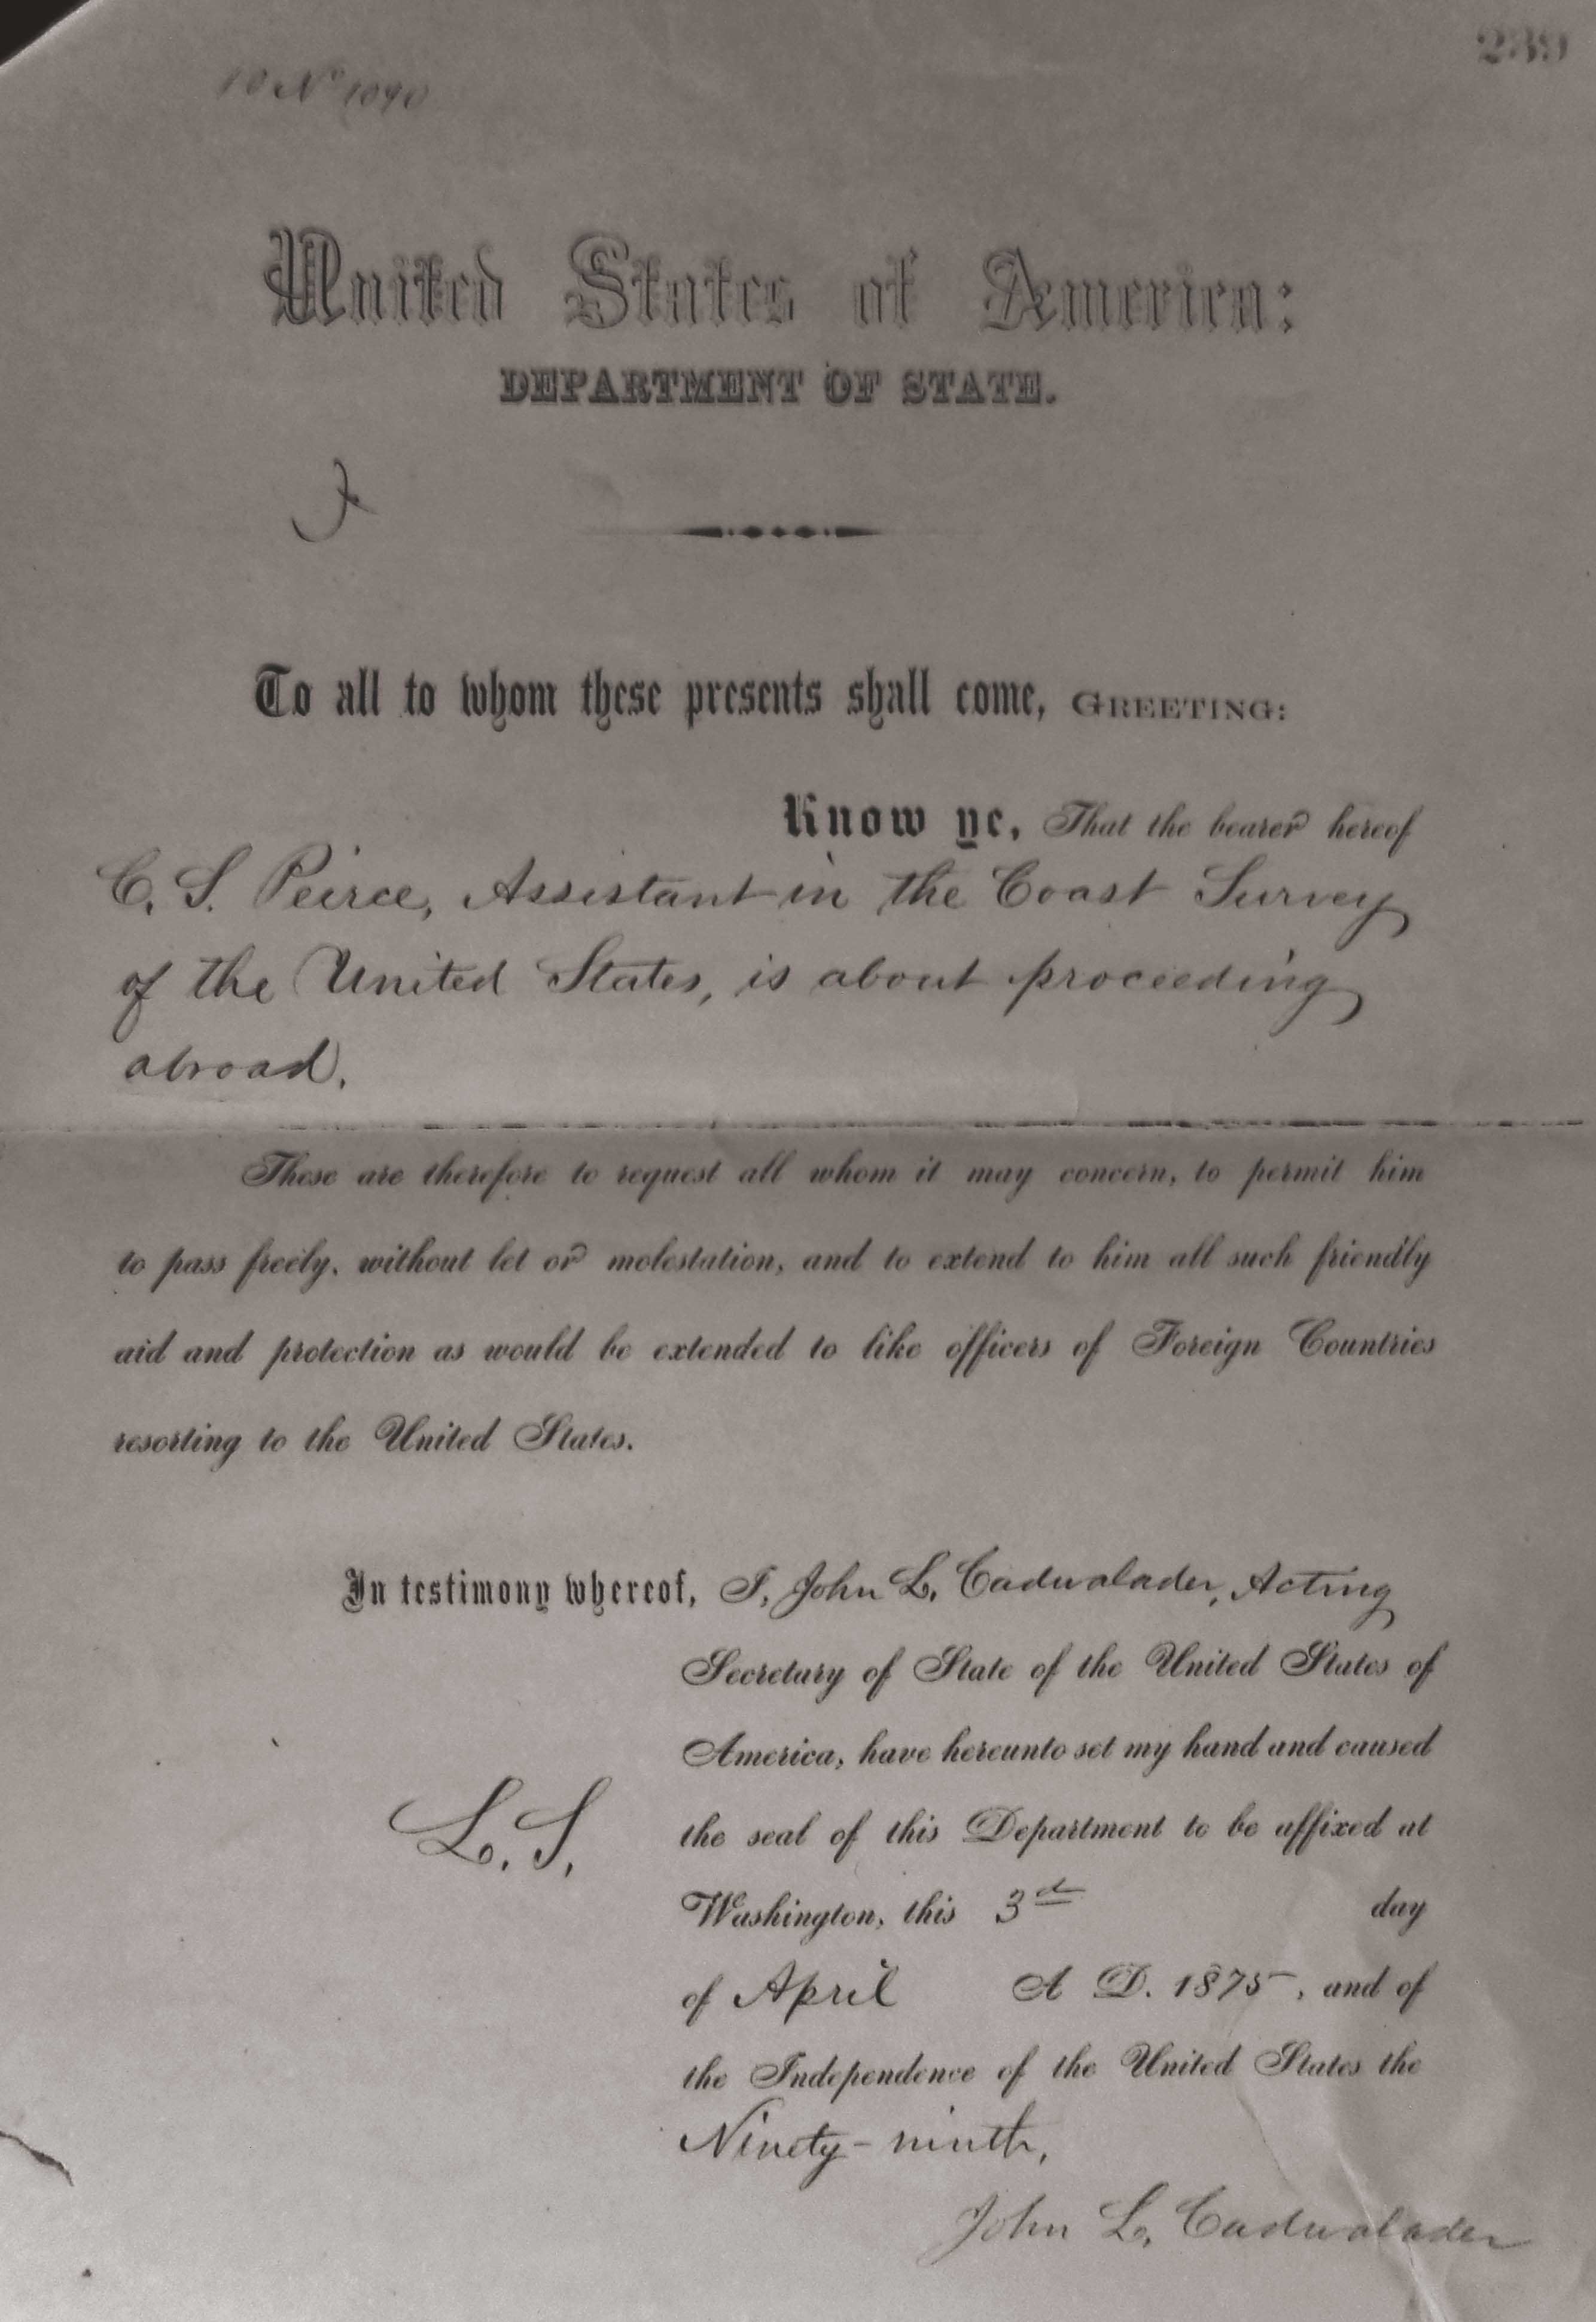 239
No 1090
United States of America:
DEPARTMENT OF STATE.
To all to whom these presents shall come, GREETING:
Know ye, That the bearer hereof
C. S. Peirce, Assistant in the Coast Survey
of the United States, is about proceeding
abroad.
These are therefore to request all whom it may concern, to permit him
to pass freely, without let or molestation, and to extend to him all such friendly
aid and protection as would be extended to like officers of Foreign Countries
resorting to the United States.
In testimony whereof, I, John L. Cadwalader, Acting
Secretary of State of the United States of
America, have hereunto set my hand and caused
the seal of this Department to be affixed at
L. S.
Washington, this 3d day
of April A D. 1875, and of
the Independence of the United States the
Ninety-ninth.
John L. Cadwalader